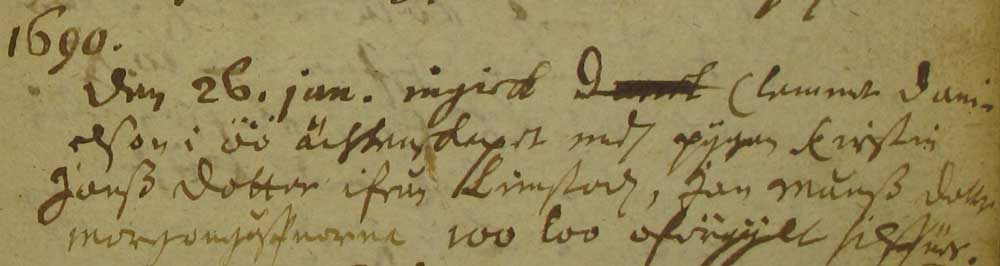 1690.
Den 26. jan. ingick Clemmet Dani-
elson i Öö ächtenskapet med pigan Kirstin
Jonß dotter ifrån Kimstad, Jon Månß dotter
morgongåffvorne 100 loo oförgylt silffver.